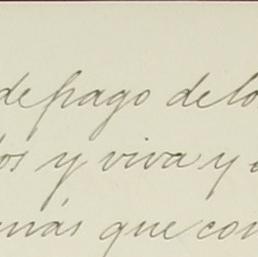 de pago de lo
os y viva y
más que con